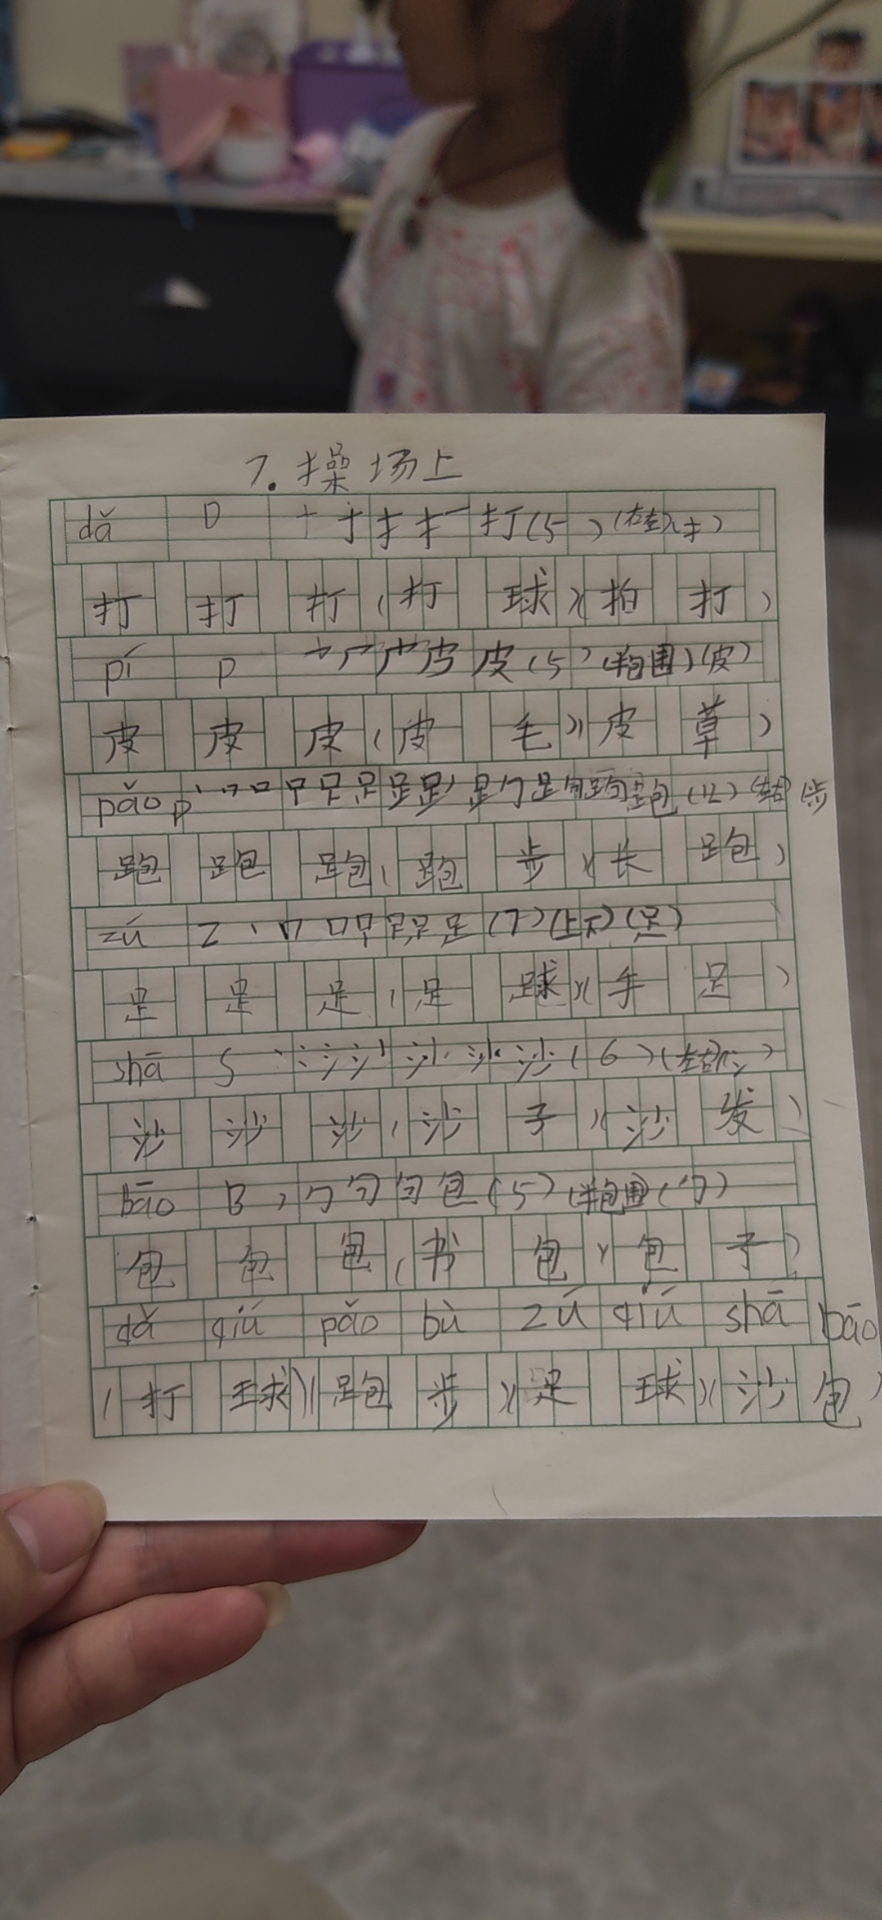 7.操场上
dǎ D 一 十 扌 扌 扌一 打(5)(左右)(扌)
打 打 打(打球)(拍打)
pí p 皮(5)(半包围)(皮)
皮 皮 皮(皮毛)(皮草)
pǎo p 丶 口 口 跑(12)(左右)
跑 跑 跑(跑步)(长跑)
zú Z 丶 口 足(7)(上下)(足)
足 足 足(足球)(手足)
shā S 丶 冫 氵 沙(6)(左右)(氵)
沙 沙 沙(沙子)(沙发)
bāo B 丿 勹 勹 包(5)(半包围)(勹)
包 包 包(书包)(包子)
dǎ qiú pǎo bù zú qiú shā bāo
(打球)(跑步)(足球)(沙包)